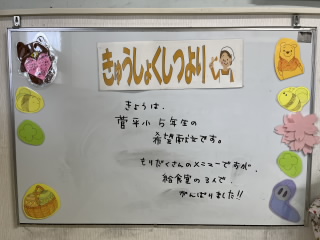 きゅうしょくしつより
きょうは、
菅平小5年生の
希望献立です。
もりだくさんのメニューですが、
給食室の3人で
がんばりました!!